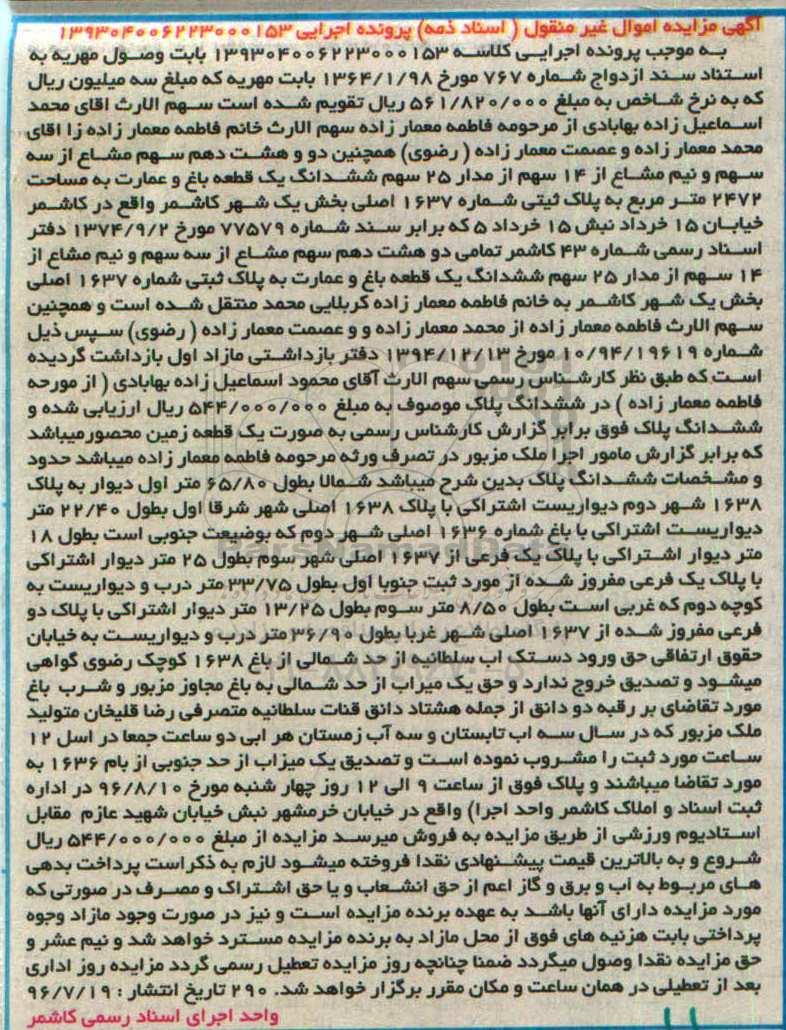 آگهی مزایده اموال غیر منقول ( اسناد ذمه) پرونده اجرایی ۱۳۹۳۰۴۰۰۶۲۲۳۰۰۰۱۵۳
به موجب پرونده اجرایی کلاسه ۱۳۹۳۰۴۰۰۶۲۲۳۰۰۰۱۵۳ بابت وصول مهریه به
استناد سند ازدواج شماره ۷۶۷ مورخ ۱۳۶۴/۱/۹۸ بابت مهریه که مبلغ سه میلیون ریال
که به نرخ شاخص به مبلغ ۵۶۱/۸۲۰/۰۰۰ ریال تقویم شده است سهم الارث اقای محمد
اسماعیل زاده بهابادی از مرحومه فاطمه معمار زاده سهم الارث خانم فاطمه معمار زاده زا اقای
محمد معمار زاده و عصمت معمار زاده ( رضوی) همچنین دو و هشت دهم سهم مشاع از سه
سهم و نیم مشاع از ۱۴ سهم از مدار ۲۵ سهم ششدانگ یک قطعه باغ و عمارت به مساحت
۲۴۷۲ متر مربع به پلاک ثیتی شماره ۱۶۳۷ اصلی بخش یک شهر کاشمر واقع در کاشمر
خیابان ۱۵ خرداد نبش ۱۵ خرداد ۵ که برابر سند شماره ۷۷۵۷۹ مورخ ۱۳۷۴/۹/۲ دفتر
اسناد رسمی شماره ۴۳ کاشمر تمامی دو هشت دهم سهم مشاع از سه سهم و نیم مشاع از
۱۴ سهم از مدار ۲۵ سهم ششدانگ یک قطعه باغ و عمارت به پلاک ثبتی شماره ۱۶۳۷ اصلی
بخش یک شهر کاشمر به خانم فاطمه معمار زاده کربلایی محمد منتقل شده است و همچنین
سهم الارث فاطمه معمار زاده از محمد معمار زاده و و عصمت معمار زاده ( رضوی) سپس ذیل
شماره ۱۰/۹۴/۱۹۶۱۹ مورخ ۱۳۹۴/۱۲/۱۳ دفتر بازداشتی مازاد اول بازداشت گردیده
است که طبق نظر کارشناس رسمی سهم الارث آقای محمود اسماعیل زاده بهابادی ( از مورحه
فاطمه معمار زاده ) در ششدانگ پلاک موصوف به مبلغ ۵۴۴/۰۰۰/۰۰۰ ریال ارزیابی شده و
ششدانگ پلاک فوق برابر گزارش کارشناس رسمی به صورت یک قطعه زمین محصورمیباشد
که برابر گزارش مامور اجرا ملک مزبور در تصرف ورثه مرحومه فاطمه معمار زاده میباشد حدود
و مشخصات ششدانگ پلاک بدین شرح میباشد شمالا بطول ۶۵/۸۰ متر اول دیوار به پلاک
۱۶۳۸ شهر دوم دیواریست اشتراکی با پلاک ۱۶۳۸ اصلی شهر شرقا اول بطول ۲۲/۴۰ متر
دیواریست اشتراکی با باغ شماره ۱۶۳۶ اصلی شهر دوم که بوضیعت جنوبی است بطول ۱۸
متر دیوار اشتراکی با پلاک یک فرعی از ۱۶۳۷ اصلی شهر سوم بطول ۲۵ متر دیوار اشتراکی
با پلاک یک فرعی مفروز شده از مورد ثبت جنوبا اول بطول ۳۳/۷۵ متر درب و دیواریست به
کوچه دوم که غربی است بطول ۸/۵۰ متر سوم بطول ۱۳/۲۵ متر دیوار اشتراکی با پلاک دو
فرعی مفروز شده از ۱۶۳۷ اصلی شهر غربا بطول ۳۶/۹۰ متر درب و دیواریست به خیابان
حقوق ارتفاقی حق ورود دستک اب سلطانیه از حد شمالی از باغ ۱۶۳۸ کوچک رضوی گواهی
میشود و تصدیق خروج ندارد و حق یک میراب از حد شمالی به باغ مجاوز مزبور و شرب باغ
مورد تقاضای بر رقبه دو دانق از جمله هشتاد دانق قنات سلطانیه متصرفی رضا قلیخان متولید
ملک مزبور که در سال سه اب تابستان و سه آب زمستان هر ابی دو ساعت جمعا در اسل ۱۲
ساعت مورد ثبت را مشروب نموده است و تصدیق یک میزاب از حد جنوبی از بام ۱۶۳۶ به
مورد تقاضا میباشند و پلاک فوق از ساعت ۹ الی ۱۲ روز چهار شنبه مورخ ۹۶/۸/۱۰ در اداره
ثبت اسناد و املاک کاشمر واحد اجرا) واقع در خیابان خرمشهر نبش خیابان شهید عازم مقابل
استادیوم ورزشی از طریق مزایده به فروش میرسد مزایده از مبلغ ۵۴۴/۰۰۰/۰۰۰ ریال
شروع و به بالاترین قیمت پیشنهادی نقدا فروخته میشود لازم به ذکراست پرداخت بدهی
های مربوط به اب و برق و گاز اعم از حق انشعاب و یا حق اشتراک و مصرف در صورتی که
مورد مزایده دارای آنها باشد به عهده برنده مزایده است و نیز در صورت وجود مازاد وجوه
پرداختی بابت هزنیه های فوق از محل مازاد به برنده مزایده مسترد خواهد شد و نیم عشر و
حق مزایده نقدا وصول میگردد ضمنا چنانچه روز مزایده تعطیل رسمی گردد مزایده روز اداری
بعد از تعطیلی در همان ساعت و مکان مقرر برگزار خواهد شد. ۲۹۰ تاریخ انتشار : ۹۶/۷/۱۹
واحد اجرای اسناد رسمی کاشمر